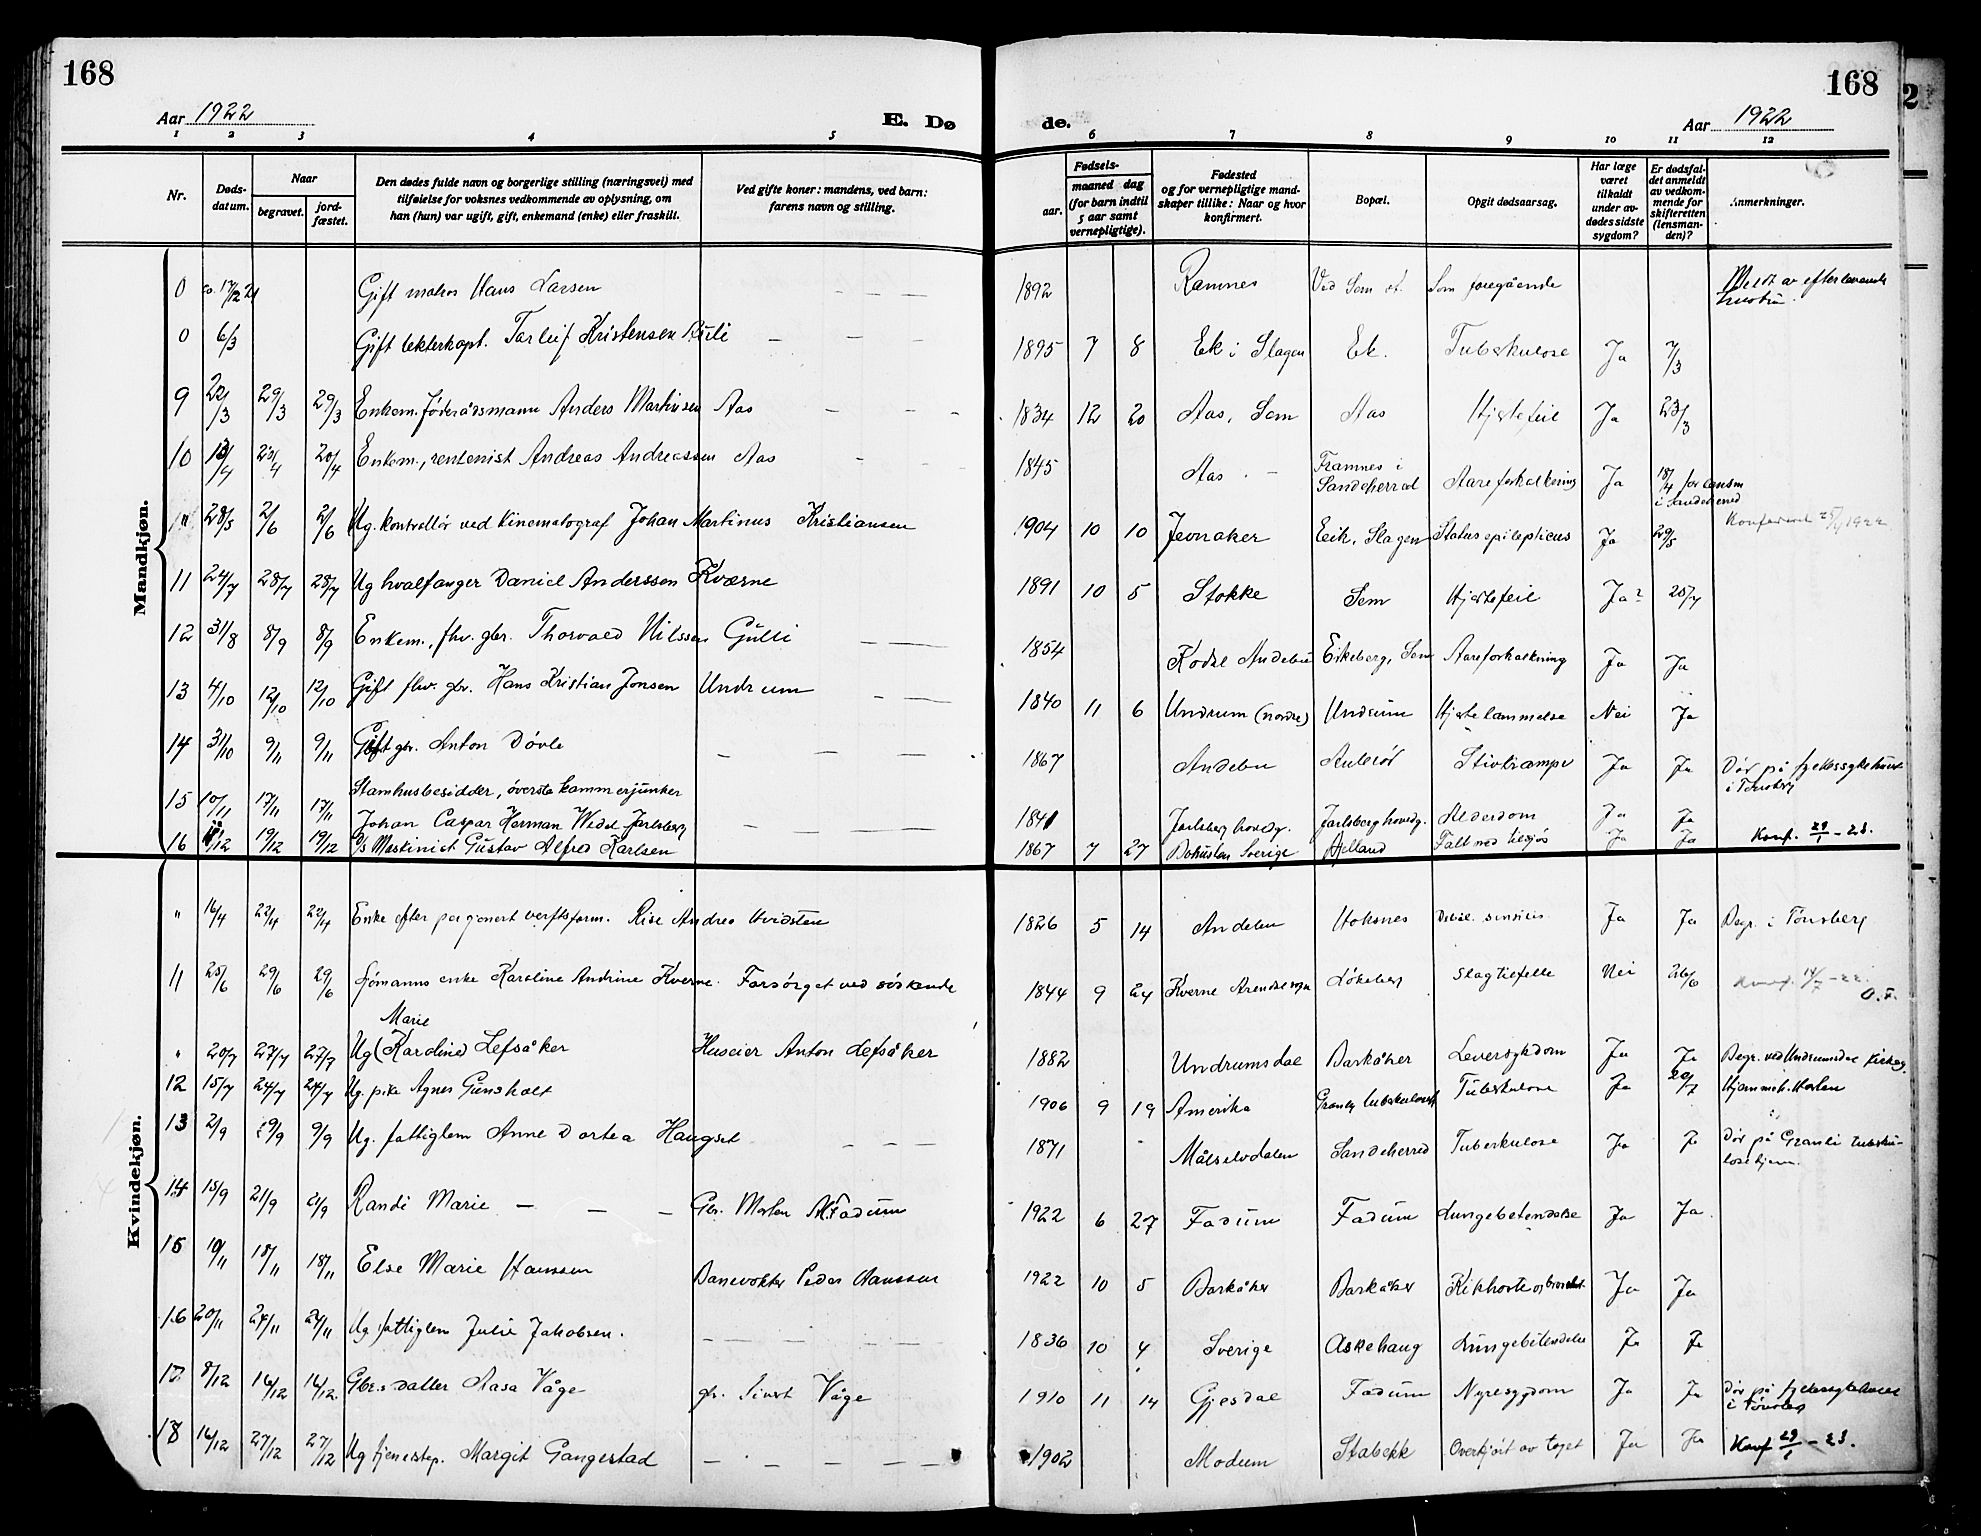 168
168
Aar 1922
E. Dø
de.
Aar 1922
1 2 3 4 5 6 7 8 9 10 11 12
Nr.
Døds-
datum.
Naar
begravet.
jord-
fæstet.
Den dødes fulde navn og borgerlige stilling (næringsvei) med
tilføielse for voksnes vedkommende av oplysning, om
han (hun) var ugift, gift, enkemand (enke) eller fraskilt.
Ved gifte koner: mandens, ved barn:
farens navn og stilling.
Fødsels-
aar.
maaned dag
(for barn indtil
5 aar samt
vernepligtige).
Fødested
og for vernepligtige mand-
skaper tillike: Naar og hvor
konfirmert.
Bopæl.
Opgit dødsaarsag.
Har læge
været
tilkaldt
under av-
dødes sidste
sygdom?
Er dødsfal-
det anmeldt
av vedkom-
mende for
skifteretten
(lensman-
den)?
Anmerkninger.
Mandkjøn.
0 17/2 21 Gift Hans Larsen — — — 1892 Ramnes Ved Sem st. Som foregående Meldt av efterlevende hustru.
0 6/3 Gift Tarleif Kristensen — — — 1895 7 8 Ek i Slagen Ek. Tuberkulose Ja 7/3
9 22/3 29/3 29/3 Enkem. föderådsmann Anders Martinsen Aas — — — 1834 12 20 Aas, Sem Aas Hjertefeil Ja 23/3
10 13/4 23/4 20/4 Enkem., rentenist Andreas Andreassen Aas — — — 1845 Aas — Framnes i Sandeherred Aareforkalkning Ja 18/4 for lensm i Sandeherred
28/5 2/6 2/6 Ug. kontrollör ved kinematograf Johan Martinus Kristiansen 1904 10 10 Jevnaker Eeik, Slagen Status epilepticus Ja 29/5 1922
11 24/7 28/7 28/7 Ug hvalfanger Daniel Anderssen Kværne 1891 10 5 Stokke Sem Hjertefeil Ja? 25/7
12 31/8 8/9 8/9 Enkem., fhv. gbr. Thorvald Nilssen Gulli — — 1854 Kodal Andebu Eikeberg, Sem Aareforkalkning Ja Ja
13 4/10 12/10 12/10 Gift fhv. gbr. Hans Kristian Jonsen Undrum — — 1840 11 6 Undrum (nordre) Undrum Hjertelammelse Nei Ja
14 31/10 9/11 9/11 Gift gbr. Anton Dövle — — — 1867 Andebu Aulerød Stivkrampe Ja Ja Dör på fylkessykehuset i Tönsberg
15 10/11 17/11 17/11 Stamhusbesidder, överste kammerjunker
Johan Caspar Herman Wedel Jarlsberg — — — 1841 Jarlsberg hovedg. Jarlsberg hovedg. Alderdom Ja Ja
16 19/12 19/12 Maskinist Gustav Alfred Karlsen 1867 7 27 Bohuslen Sverige Falt ned tilsjøs Ja Ja Konf. 29/1 - 23.
Kvindekjøn.
" 16/4 22/4 22/4 Enke efter verftsform. Andrea Hvidsten 1826 5 14 Andebu Hoksnes Ja Ja Begr. i Tönsberg
11 25/6 29/6 29/6 Sjömanns enke Karoline Andrine Kverne. Forsörget ved söskende 1844 9 24 Kverne Lökeberg Slagtilfelle Nei 26/6 Konf. 14/7 - 22. O. F.
Marie
" 20/7 27/7 27/7 Ug (Karoline) Lefsåker Huseier Anton Lefsåker 1882 Undrumsdal Barkåker Leversygdom Ja Ja Begr. ved Undrumsdal kirke
12 15/7 24/7 24/7 Ug. pike Agnes Gunsholt 1906 9 19 Amerika Tuberkulose Ja 20/7
13 2/9 9/9 9/9 Ug. fattiglem Anne Dortea Haugset — — — 1871 Målselvdalen Sandeherred Tuberkulose Ja Ja Dör på Granli tuberkulosehjem.
14 15/9 21/9 21/9 Randi Marie — — — Gbr. Morten Fadum 1922 6 27 Fadum Fadum Lungebetendelse Ja Ja
15 10/11 18/11 18/11 Else Marie Hanssen Banevokter Peder Hanssen 1922 10 5 Barkåker Barkåker Kikhoste og bronkit. Ja Ja
16 20/11 24/11 24/11 Ug. fattiglem Julie Jakobsen. — — — 1836 10 4 Sverige Askehaug Lungebetendelse Ja Ja
17 8/12 14/12 14/12 Gbrs datter Aasa Våge gbr. Sivert Våge 1910 11 14 Gjesdal Fadum Nyresygdom Ja Ja Dör på fylkessykehuset i Tönsberg
18 14/12 27/12 27/12 Ug tjenestep. Margit Gangestad — — — 1902 Modum Stabekk Overkjört av toget Ja Ja Konf 29/1 - 23.